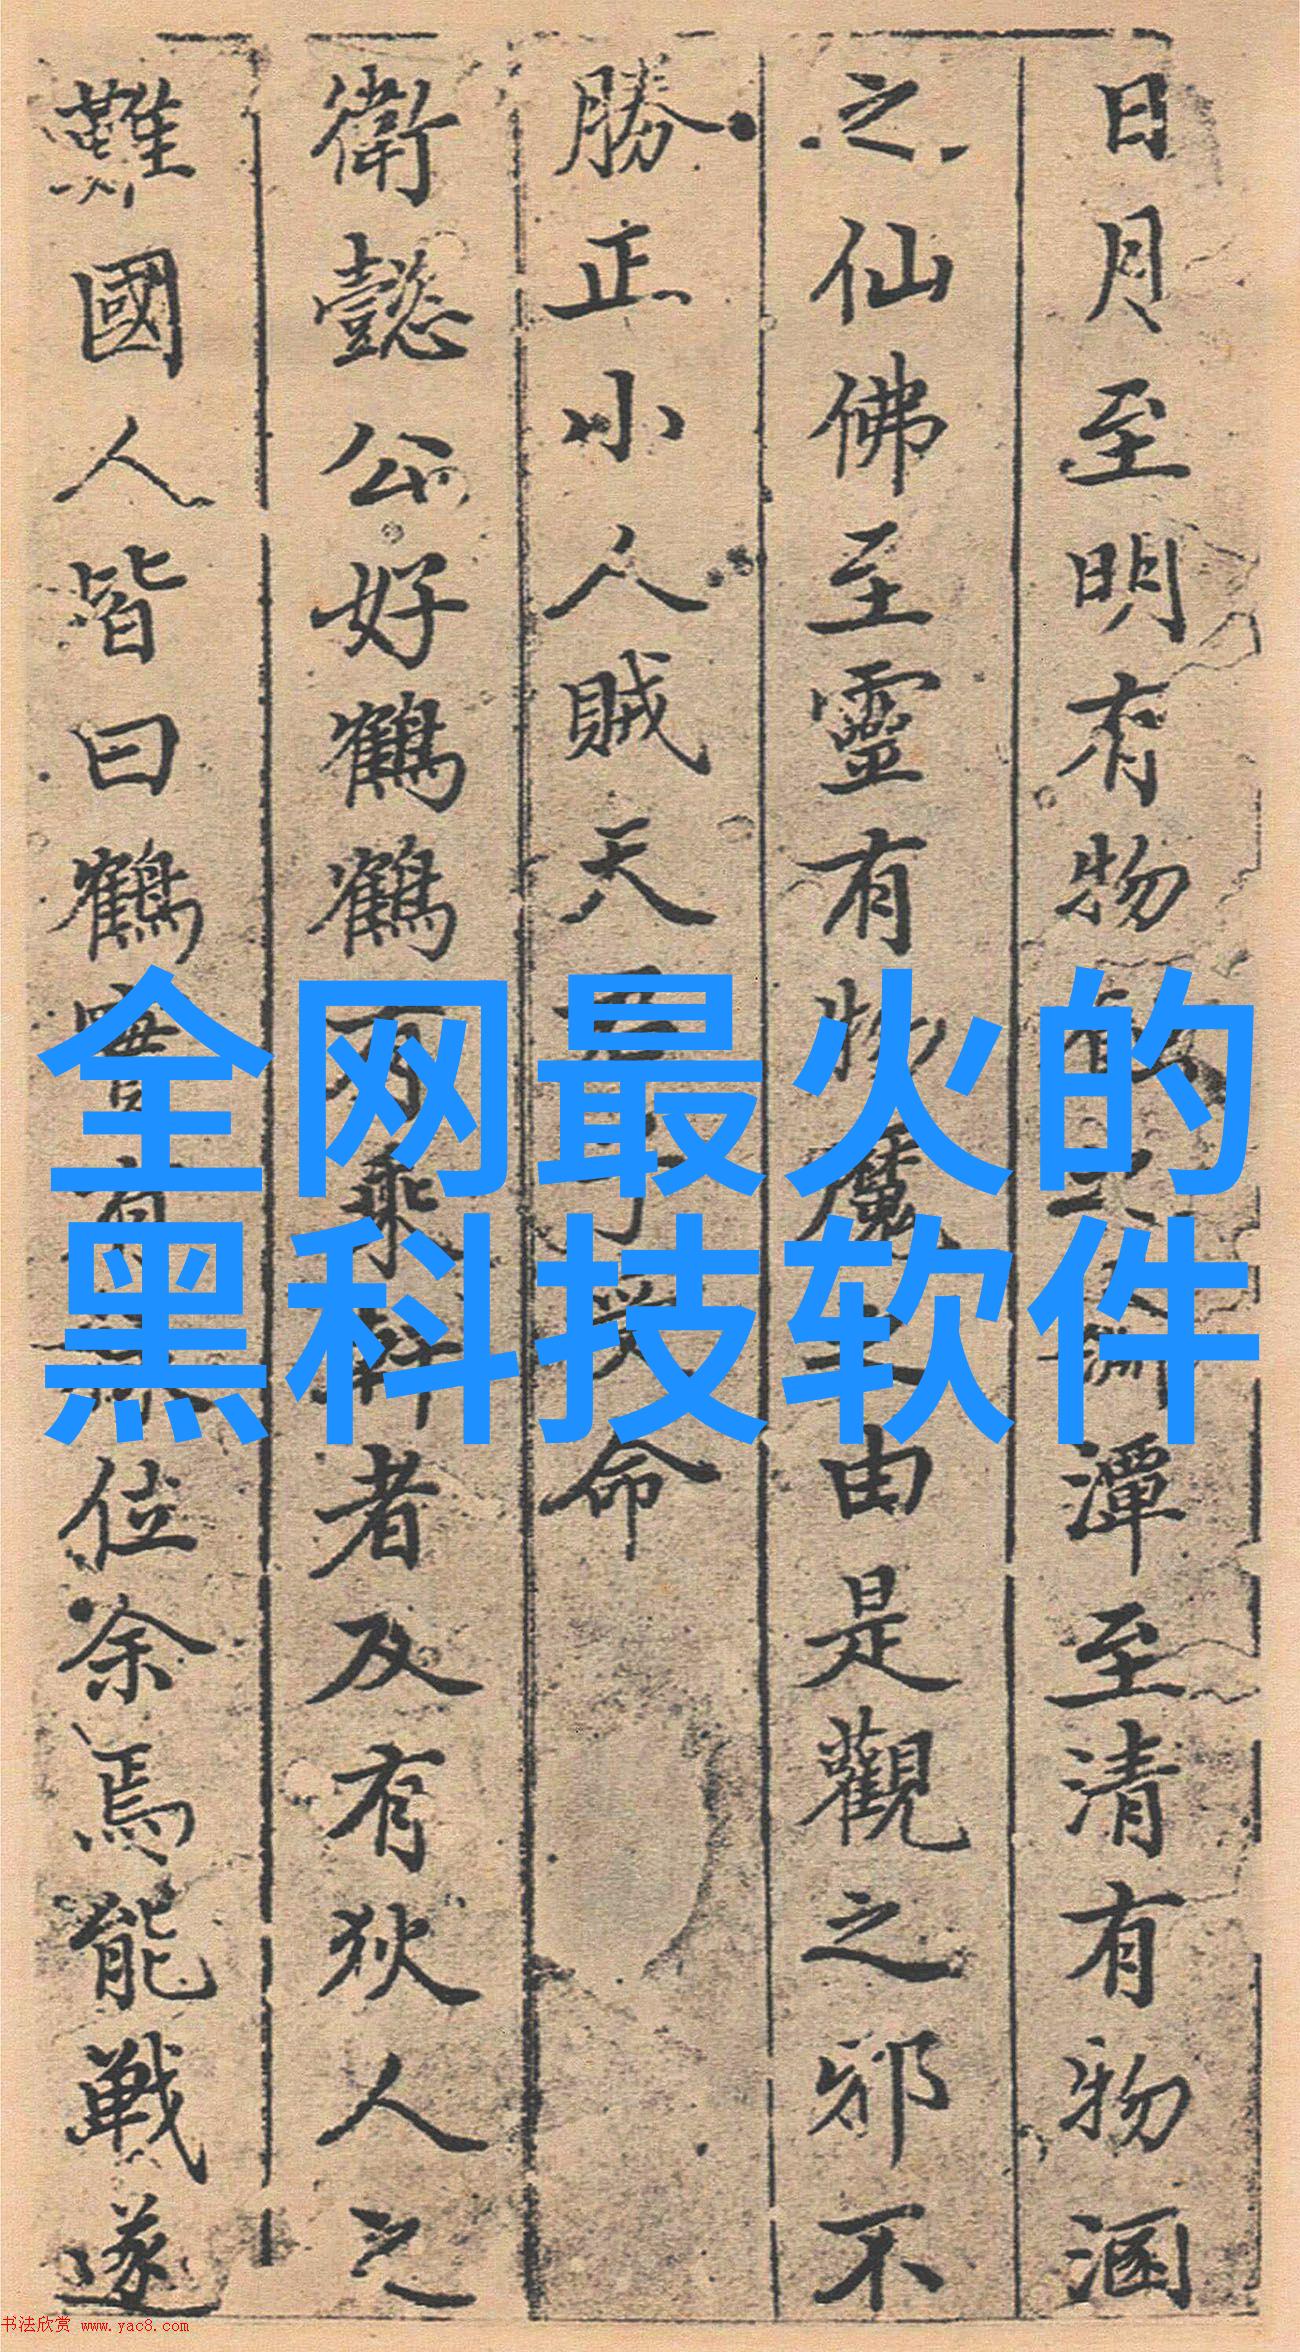 日月至明有物
潭至清有物涵
之仙佛至靈有物魔之由是觀之邪不
勝正小人賊天
命
衛懿公好鶴鶴有乘軒者及有狄人之
難國人皆曰鶴實有祿位余焉能戰遂
全网最火的
黑科技软件
书法欣赏 www.yac8.com